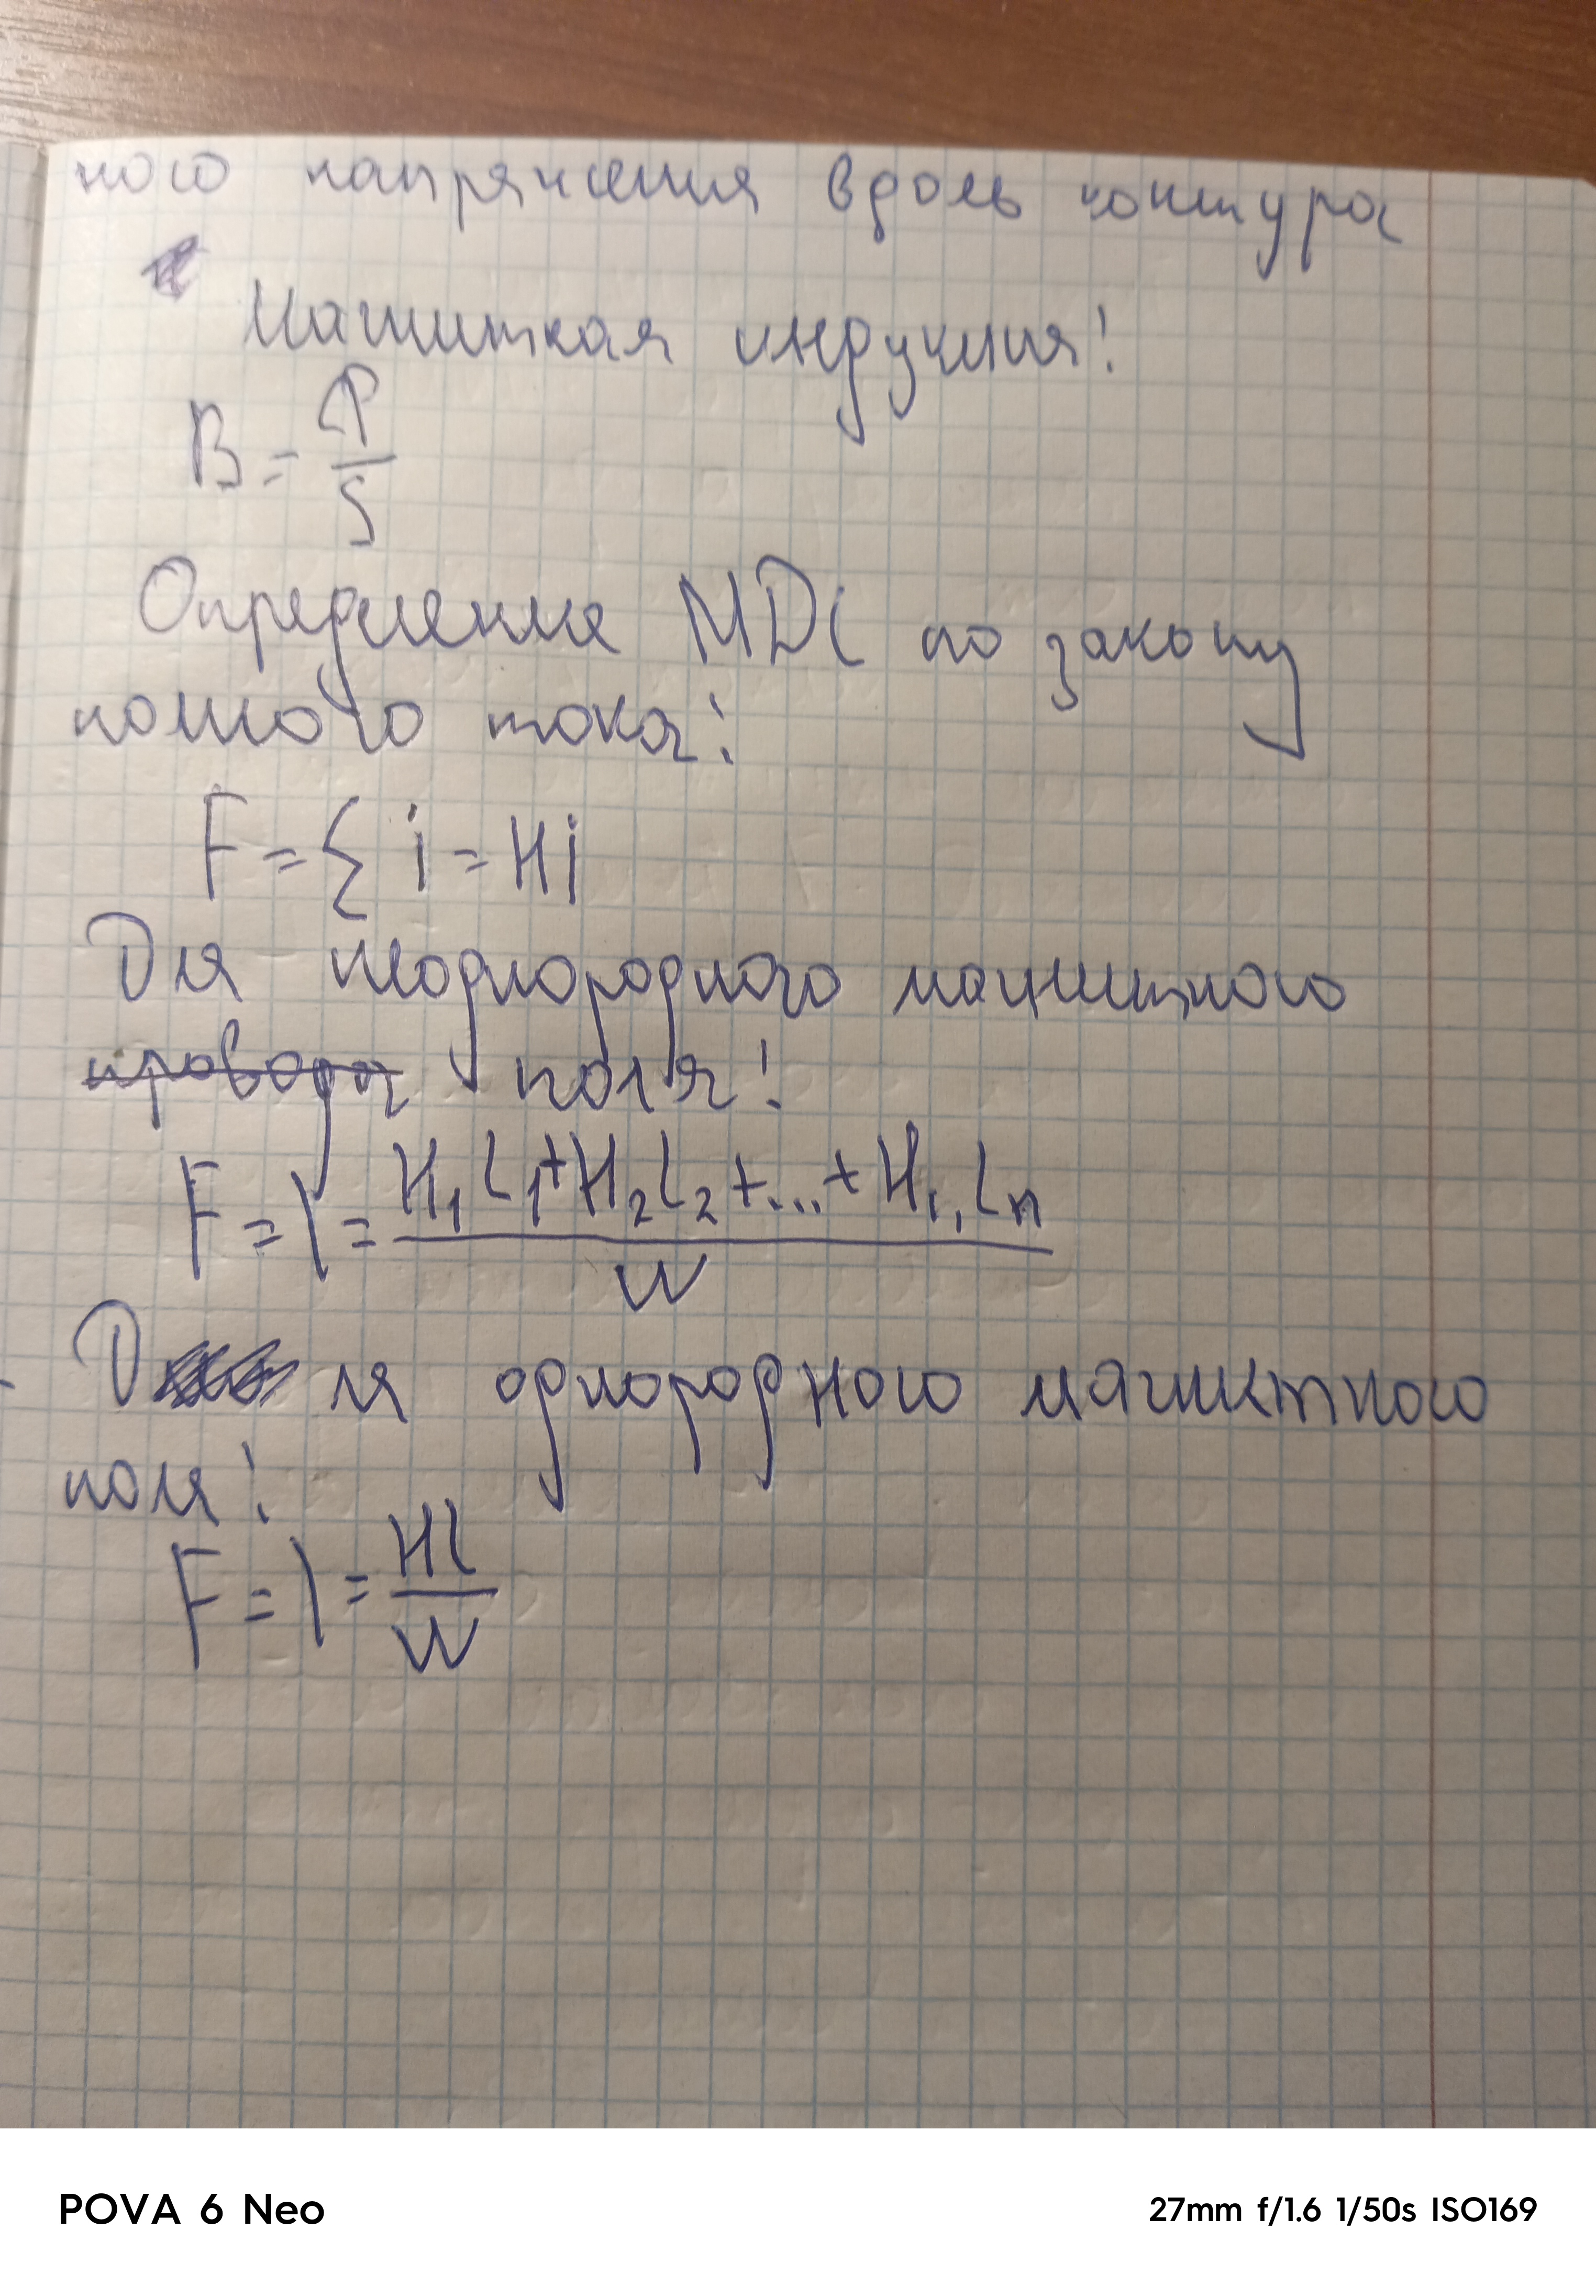 ного напряжения вдоль контура
Магниткая индукция:
B = Ф/S
Определение МДС по закону
полного тока:
F = Σ i = Hj
Для неоднородного магнитного
провода поля:
F = I = H₁l₁ + H₂l₂ + ... + H₁,lₙ / W
Для однородного магнитного
поля:
F = I = Hl / W
POVA 6 Neo
27mm f/1.6 1/50s ISO169